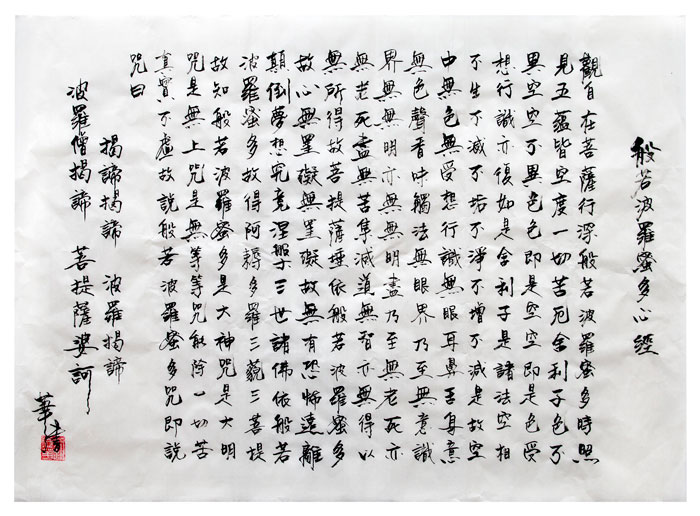 般若波羅蜜多心經
觀自在菩薩行深般若波羅蜜多時照
見五蘊皆空度一切苦厄舍利子色不
異空空不異色色即是空空即是色受
想行識亦復如是舍利子是諸法空相
不生不滅不垢不淨不增不減是故空
中無色無受想行識無眼耳鼻舌身意
無色聲香味觸法無眼界乃至無意識
界無無明亦無無明盡乃至無老死亦
無老死盡無苦集滅道無智亦無得以
無所得故菩提薩埵依般若波羅蜜多
故心無罣礙無罣礙故無有恐怖遠離
顛倒夢想究竟涅槃三世諸佛依般若
波羅蜜多故得阿耨多羅三藐三菩提
故知般若波羅蜜多是大神咒是大明
咒是無上咒是無等等咒能除一切苦
真實不虛故說般若波羅蜜多咒即說
咒曰
揭諦揭諦 波羅揭諦
波羅僧揭諦 菩提薩婆訶
華